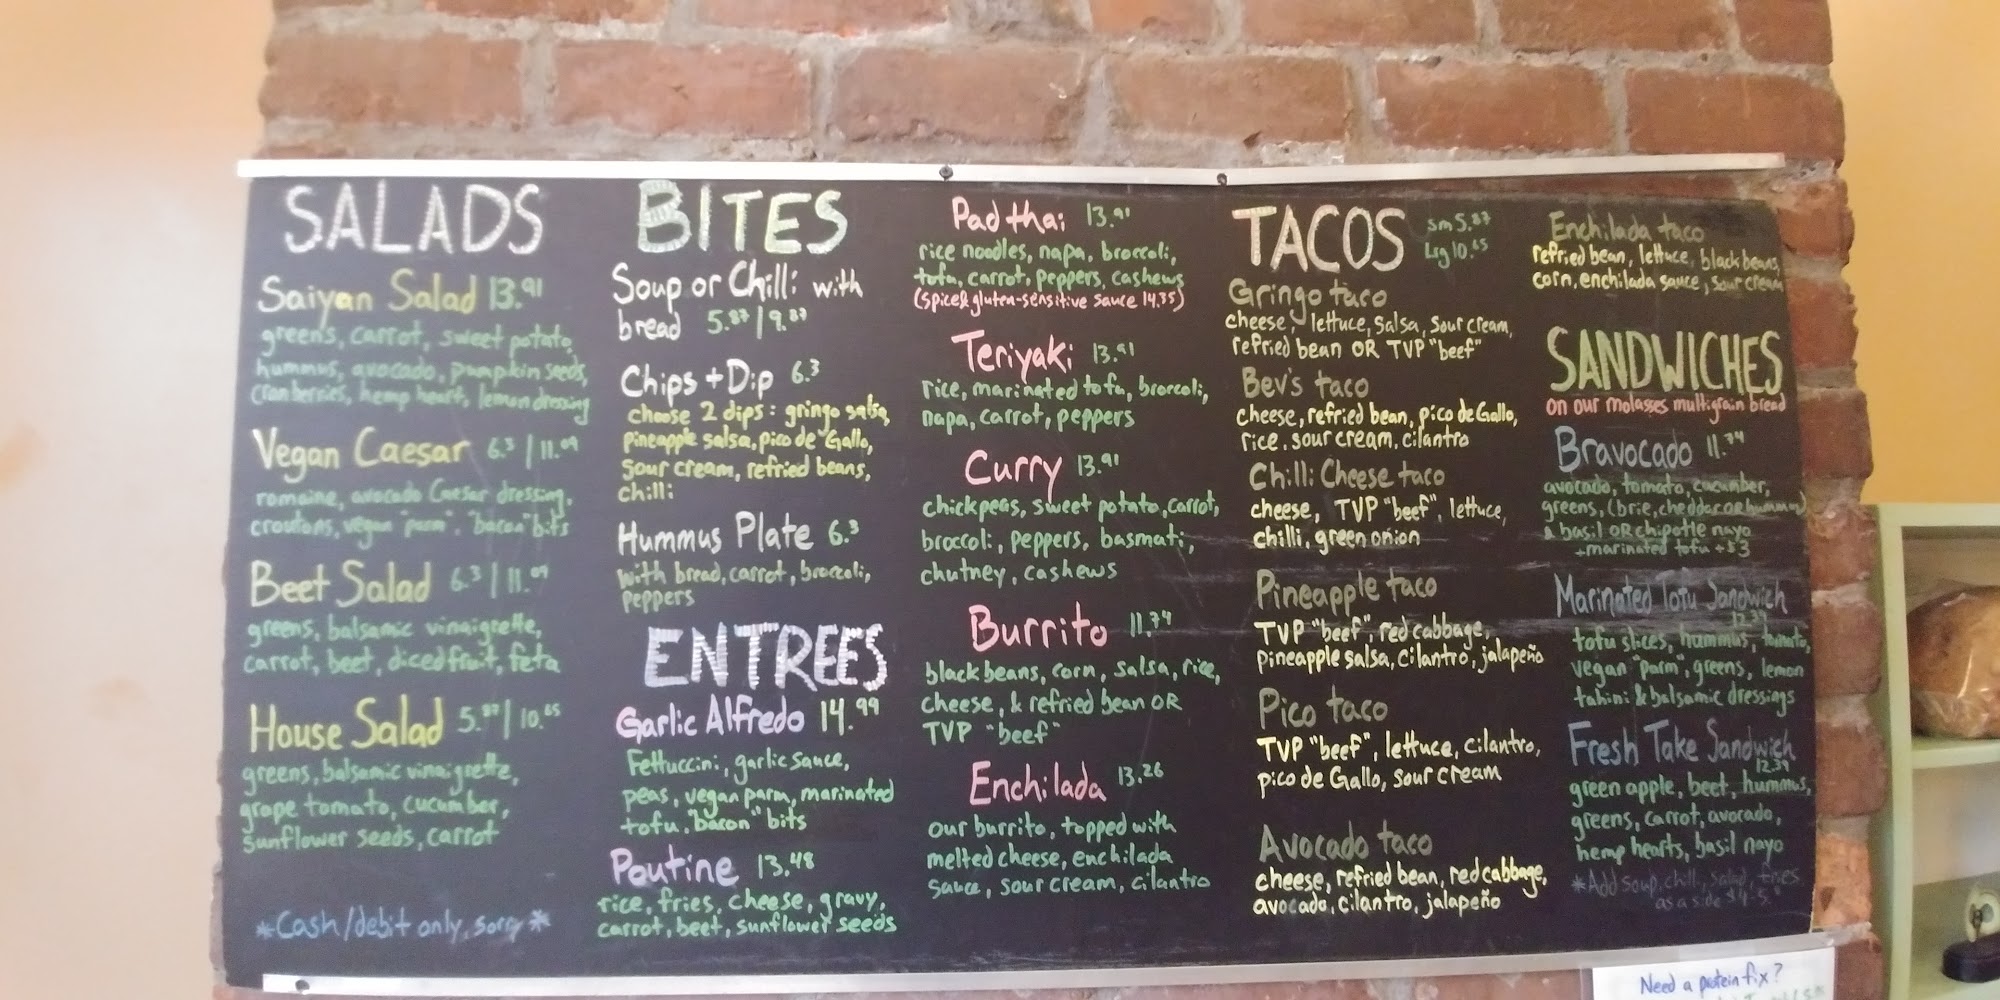 SALADS
Saiyan Salad 13.91
greens, carrot, sweet potato,
hummus, avocado, pumpkin seeds,
cranberries, hemp heart, lemon dressing
Vegan Caesar 6.3 | 11.09
romaine, avocado Caesar dressing,
croutons, vegan "parm", "bacon" bits
Beet Salad 6.3 | 11.09
greens, balsamic vinaigrette,
carrot, beet, diced fruit, feta
House Salad 5.87 | 10.65
greens, balsamic vinaigrette,
grape tomato, cucumber,
sunflower seeds, carrot
*Cash/debit only, sorry*
BITES
Soup or Chili: with
bread 5.87 | 9.87
Chips + Dip 6.3
choose 2 dips: gringo salsa,
pineapple salsa, pico de Gallo,
sour cream, refried beans,
chili
Hummus Plate 6.3
with bread, carrot, broccoli,
peppers
ENTREES
Garlic Alfredo 14.99
Fettuccini, garlic sauce,
peas, vegan parm, marinated
tofu, "bacon" bits
Poutine 13.48
rice, fries, cheese, gravy,
carrot, beet, sunflower seeds
Pad thai 13.91
rice noodles, napa, broccoli,
tofu, carrot, peppers, cashews
(spice & gluten-sensitive sauce 14.35)
Teriyaki 13.91
rice, marinated tofu, broccoli,
napa, carrot, peppers
Curry 13.91
chickpeas, sweet potato, carrot,
broccoli, peppers, basmati,
chutney, cashews
Burrito 11.74
black beans, corn, salsa, rice,
cheese, & refried bean OR
TVP "beef"
Enchilada 13.26
our burrito, topped with
melted cheese, enchilada
sauce, sour cream, cilantro
TACOS sm 5.87
Lrg 10.65
Gringo taco
cheese, lettuce, salsa, sour cream,
refried bean OR TVP "beef"
Bev's taco
cheese, refried bean, pico de Gallo,
rice, sour cream, cilantro
Chili Cheese taco
cheese, TVP "beef", lettuce,
chilli, green onion
Pineapple taco
TVP "beef", red cabbage,
pineapple salsa, cilantro, jalapeño
Pico taco
TVP "beef", lettuce, cilantro,
pico de Gallo, sour cream
Avocado taco
cheese, refried bean, red cabbage,
avocado, cilantro, jalapeño
Enchilada taco
refried bean, lettuce, black beans,
corn, enchilada sauce, sour cream
SANDWICHES
on our molasses multigrain bread
Bravocado 11.74
avocado, tomato, cucumber,
greens, (brie, cheddar OR hummus)
& basil OR chipotle nayo
+marinated tofu +$3
Marinated Tofu Sandwich
12.39
tofu slices, hummus, tomato,
vegan "parm", greens, lemon
tahini & balsamic dressings
Fresh Take Sandwich
12.39
green apple, beet, hummus,
greens, carrot, avocado,
hemp hearts, basil nayo
*Add soup, chili, salad, fries
as a side $4-5
Need a protein fix?